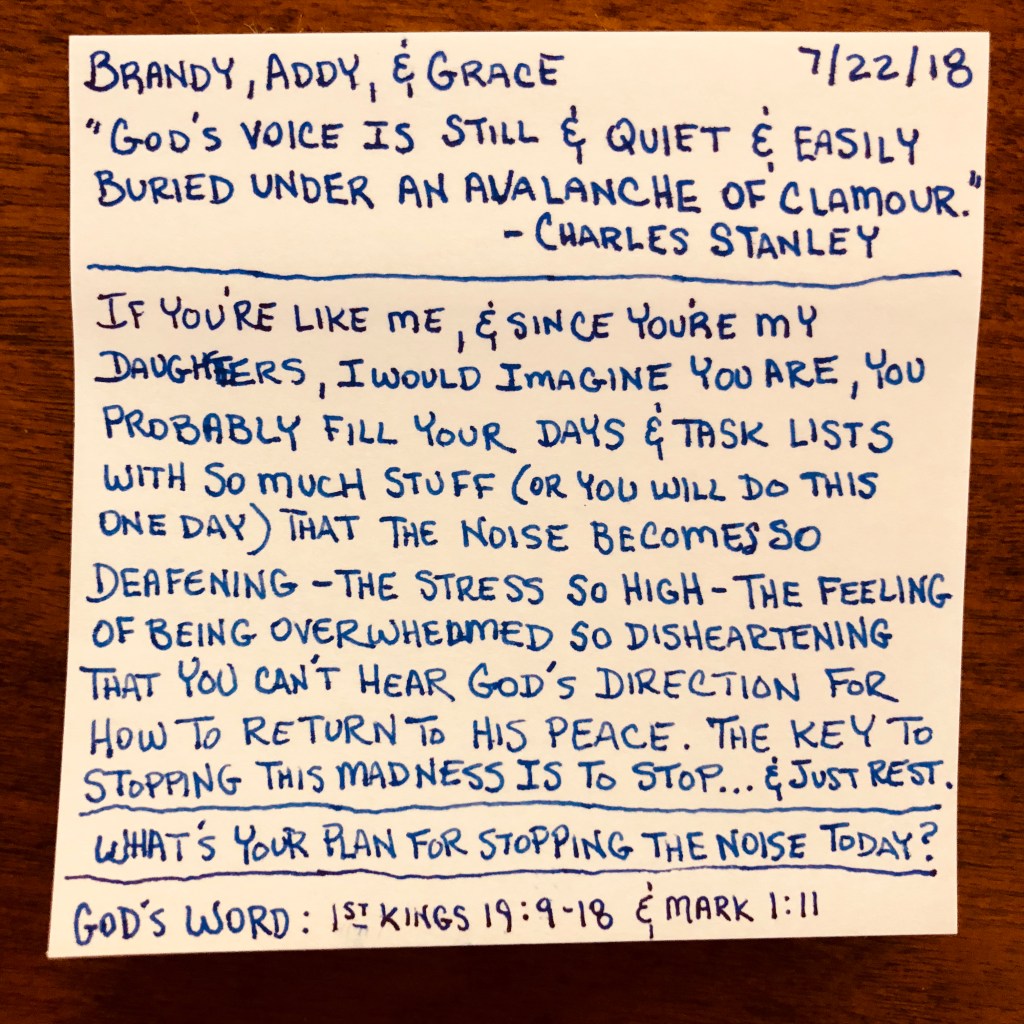 BRANDY, ADDY, & GRACE 7/22/18
"GOD'S VOICE IS STILL & QUIET & EASILY
BURIED UNDER AN AVALANCHE OF CLAMOUR."
- CHARLES STANLEY
IF YOU'RE LIKE ME, & SINCE YOU'RE MY
DAUGHTERS, I WOULD IMAGINE YOU ARE, YOU
PROBABLY FILL YOUR DAYS & TASK LISTS
WITH SO MUCH STUFF (OR YOU WILL DO THIS
ONE DAY) THAT THE NOISE BECOMES SO
DEAFENING - THE STRESS SO HIGH - THE FEELING
OF BEING OVERWHELMED SO DISHEARTENING
THAT YOU CAN'T HEAR GOD'S DIRECTION FOR
HOW TO RETURN TO HIS PEACE. THE KEY TO
STOPPING THIS MADNESS IS TO STOP... & JUST REST.
WHAT'S YOUR PLAN FOR STOPPING THE NOISE TODAY?
GOD'S WORD: 1ST KINGS 19:9-18 & MARK 1:11